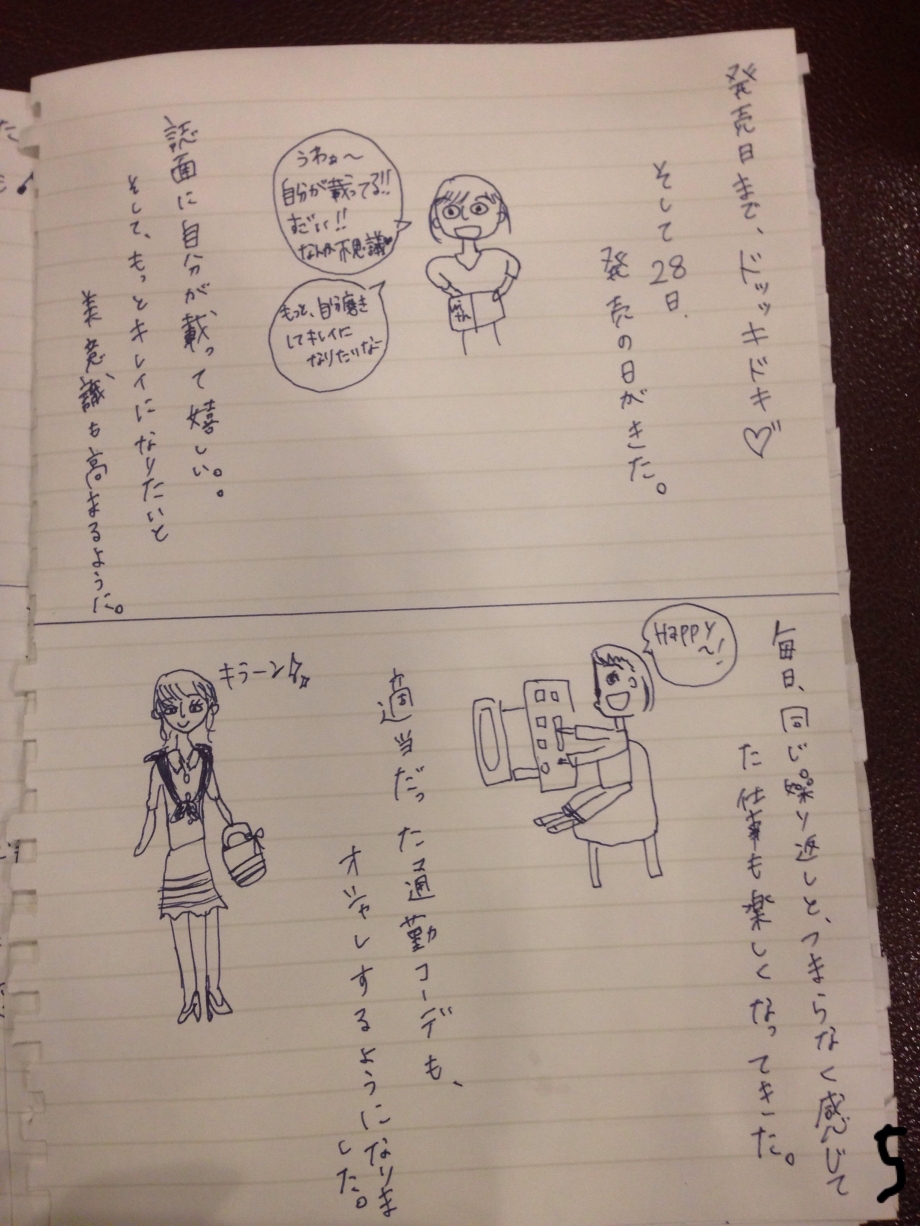 発売日まで、ドッッキドキ♡
そして28日、
発売の日がきた。
うわぁ〜
自分が載ってる!!
すごい!!
なんか不思議♥
もっと、自分磨き
してキレイに
なりたいなー
誌面に自分が載って嬉しい。。
そして、もっとキレイになりたいと
美意識も高まるように。
毎日、同じ繰り返しと、つまらなく感じて
た仕事も楽しくなってきた。
Happy
〜!
適当だった通勤コーデも、
オシャレするようになりま
した。
キラーン
5